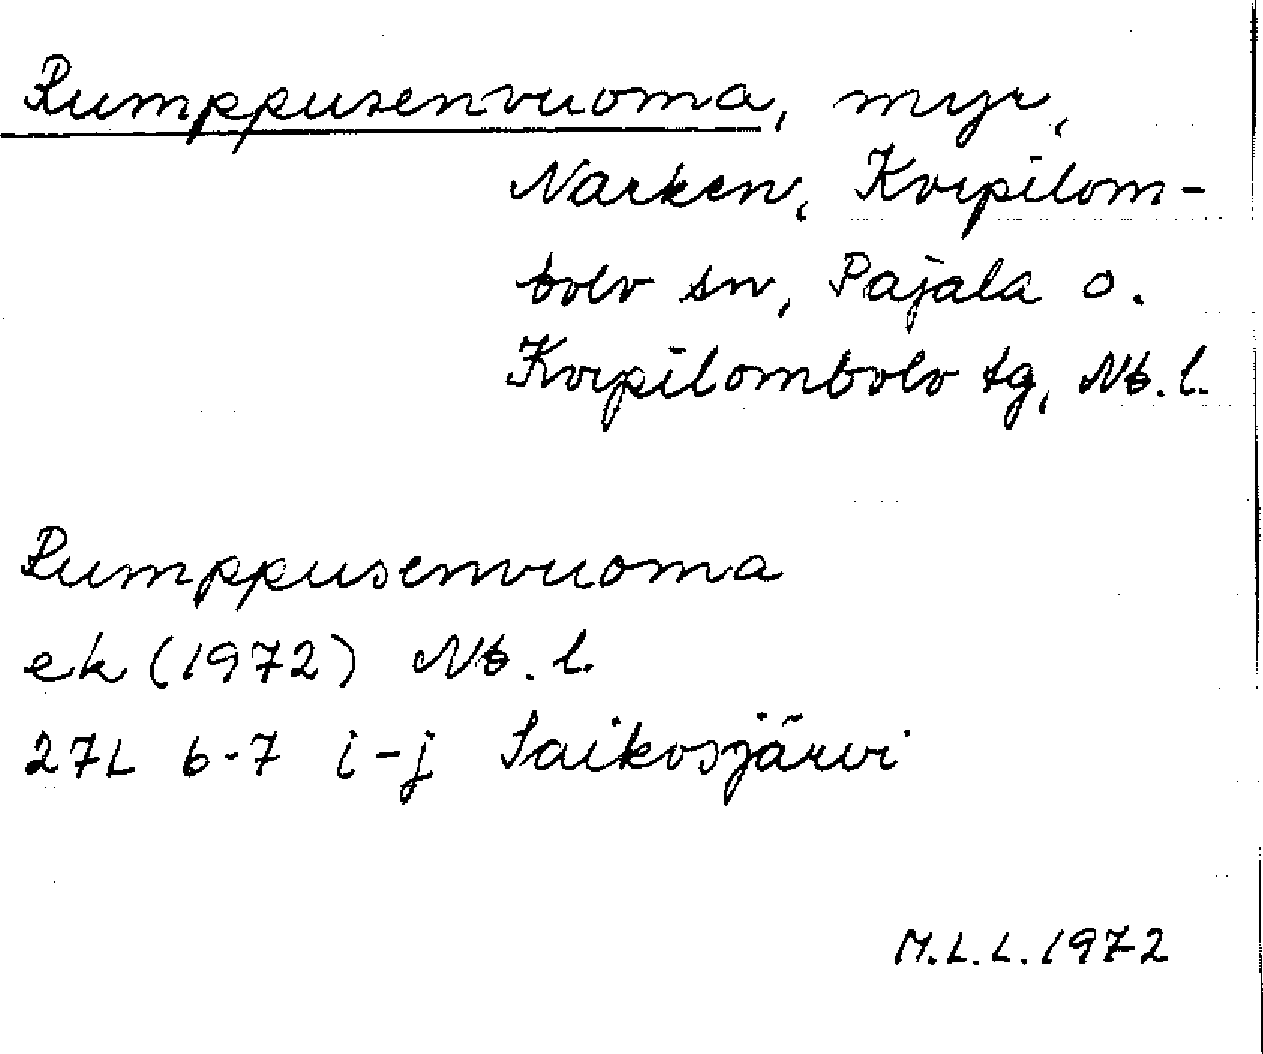 Rumppusenvuoma, myr,
Narken, Korpilom-
bolo sn, Pajala o.
Korpilombolo tg, Nb. l.
Rumppusenvuoma
ek (1972) Nb. l.
27L 6-7 i-j Saikosjärvi
M.L.L. 1972